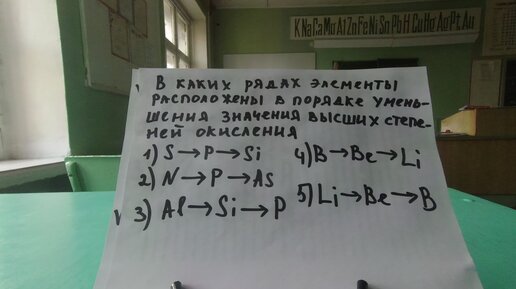 K Na Ca Mg Al Zn Fe Ni Sn Pb H Cu Hg Ag Pt Au
В КАКИХ РЯДАХ ЭЛЕМЕНТЫ
РАСПОЛОЖЕНЫ В ПОРЯДКЕ УМЕНЬ-
ШЕНИЯ ЗНАЧЕНИЯ ВЫСШИХ СТЕПЕ-
НЕЙ ОКИСЛЕНИЯ
1) S→P→Si 4) B→Be→Li
2) N→P→As
3) Al→Si→P 5) Li→Be→B